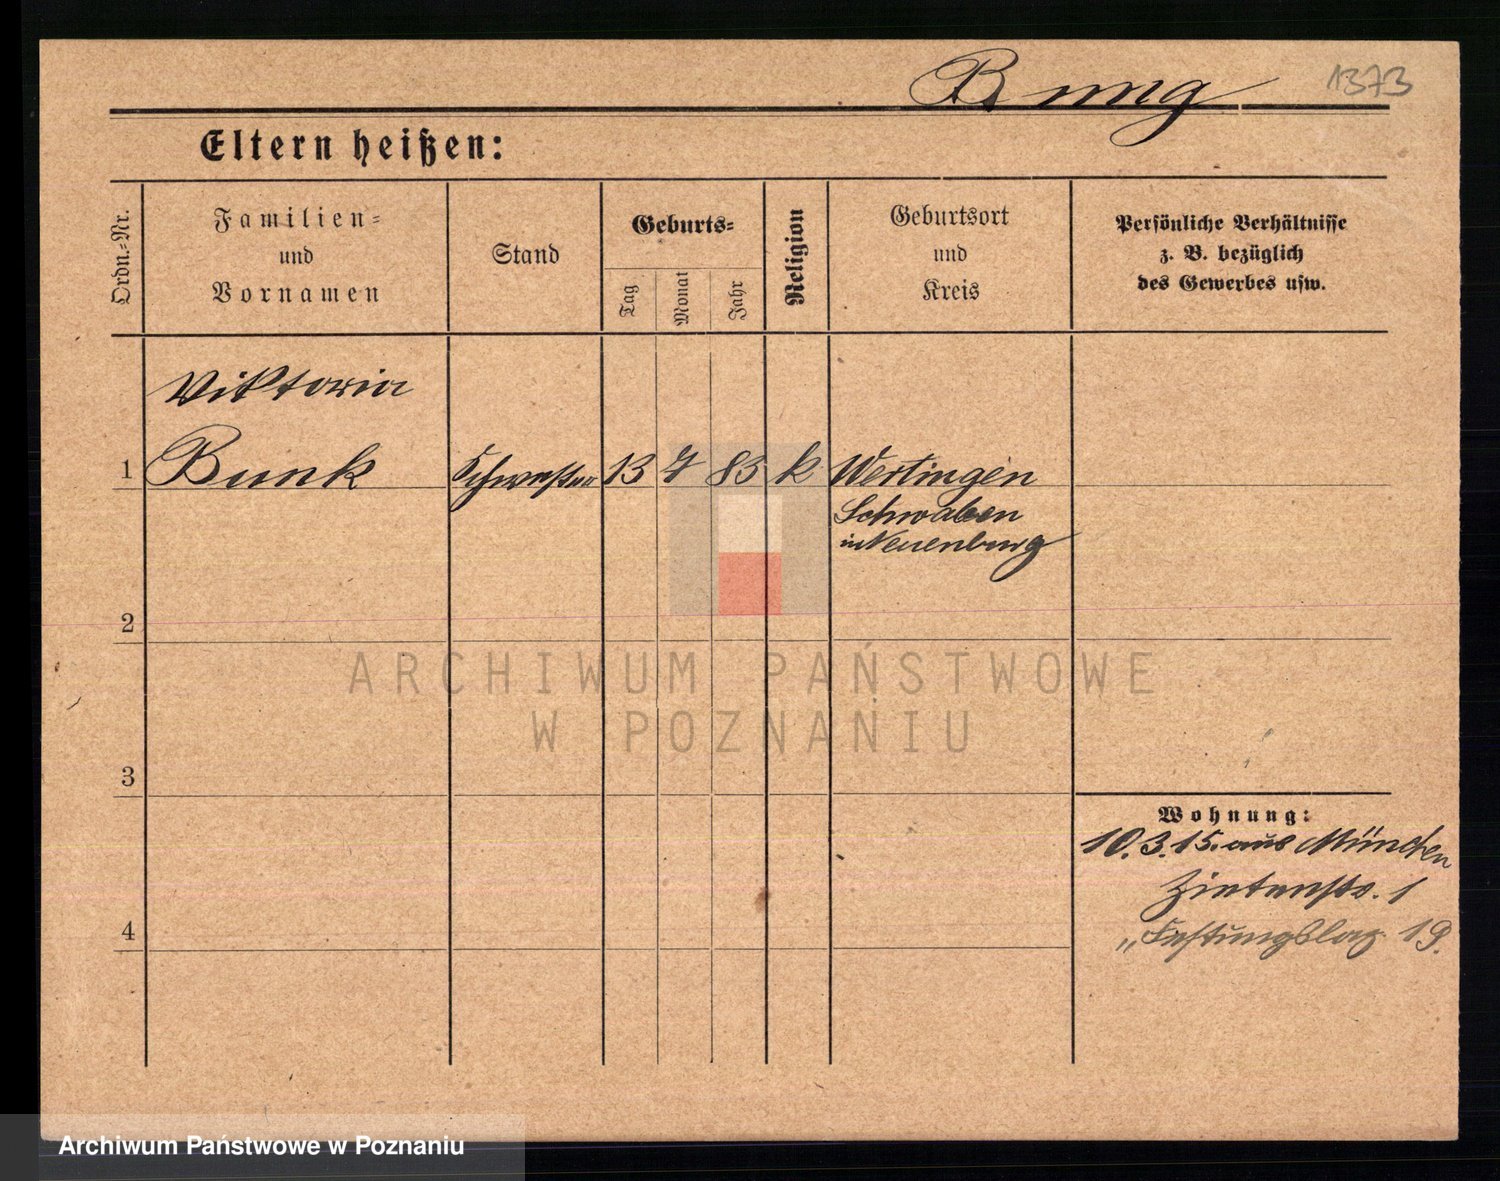 Bung 1373
Eltern heißen:
Ordn.-Nr.
Familien-
und
Vornamen
Stand
Geburts-
Tag
Monat
Jahr
Religion
Geburtsort
und
Kreis
Persönliche Verhältnisse
z. B. bezüglich
des Gewerbes usw.
Viktoria
1 Bunk Schwester 13 7 83 k Wertingen
Schwaben
in Neuenburg
2
ARCHIWUM PAŃSTWOWE
W POZNANIU
3
Wohnung:
10.3.15. aus München
Zietenstr. 1
4 „Festungslaz. 19.
Archiwum Państwowe w Poznaniu